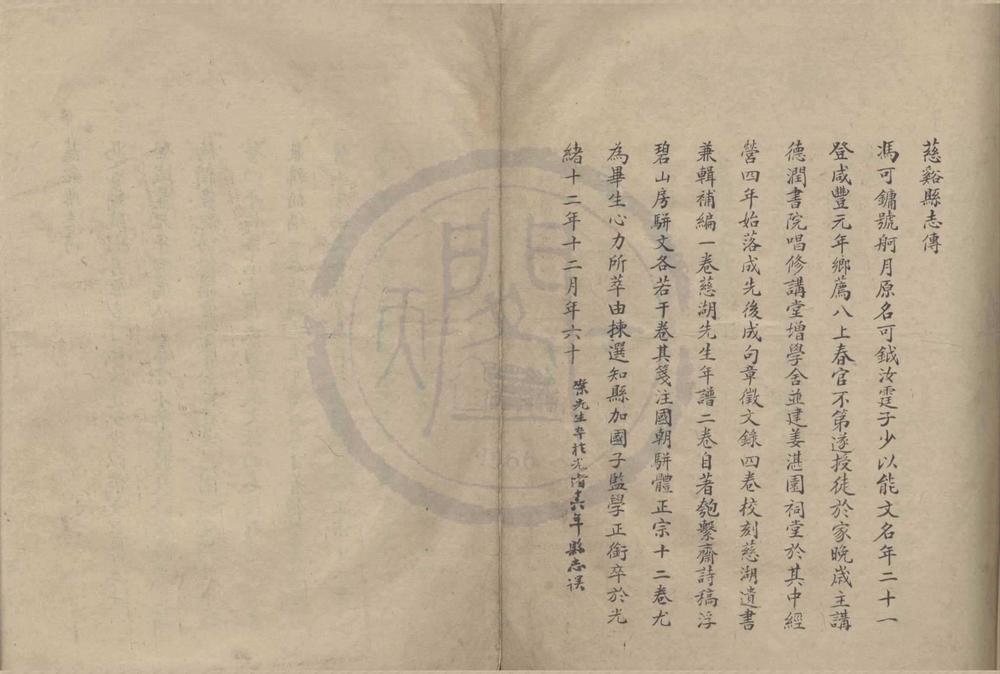 慈谿縣志傳
馮可鏞號舸月原名可鉞汝霆子少以能文名年二十一
登咸豐元年鄉薦八上春官不第遂授徒於家晚歲主講
德潤書院唱修講堂增學舍並建姜湛園祠堂於其中經
營四年始落成先後成句章徵文錄四卷校刻慈湖遺書
兼輯補編一卷慈湖先生年譜二卷自著匏繫齋詩稿浮
碧山房駢文各若干卷其箋注國朝駢體正宗十二卷尤
為畢生心力所萃由揀選知縣加國子監學正銜卒於光
緒十二年十二月年六十
先生卒於光緒年縣志誤